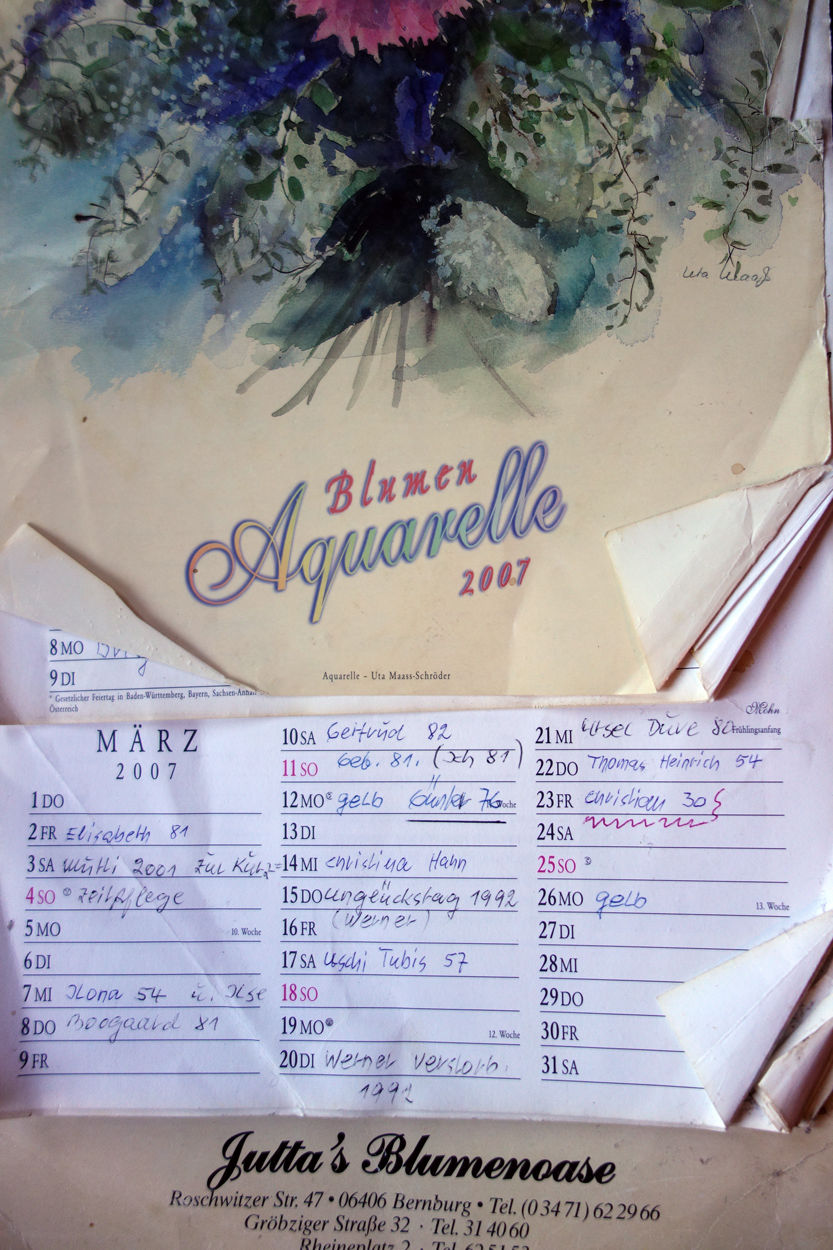 Uta Maaß
Blumen
Aquarelle
2007
Aquarelle - Uta Maass-Schröder
8 MO
9 DI
* Gesetzlicher Feiertag in Baden-Württemberg, Bayern, Sachsen-Anhalt
Österreich
MÄRZ
2007
1 DO
2 FR Elisabeth 81
3 SA Mutti 2001 zur Kurz=
4 SO Zeitpflege
5 MO 10. Woche
6 DI
7 MI Ilona 54 u. Ilse
8 DO Boogaard 81
9 FR
10 SA Gertrud 82
11 SO Geb. 81. (Ich 81)
12 MO gelb Günter 76 Woche
13 DI
14 MI Christina Hahn
15 DO Unglückstag 1992
16 FR (Werner)
17 SA Uschi Tubis 57
18 SO
19 MO 12. Woche
20 DI Werner verstorb.
1992
21 MI Ursel Duve 80 Frühlingsanfang
22 DO Thomas Heinrich 54
23 FR Christian 30
24 SA
25 SO
26 MO gelb 13. Woche
27 DI
28 MI
29 DO
30 FR
31 SA
Jutta's Blumenoase
Roschwitzer Str. 47 • 06406 Bernburg • Tel. (0 34 71) 62 29 66
Gröbziger Straße 32 · Tel. 31 40 60
Rheineplatz 2 · Tel. 62 51 52